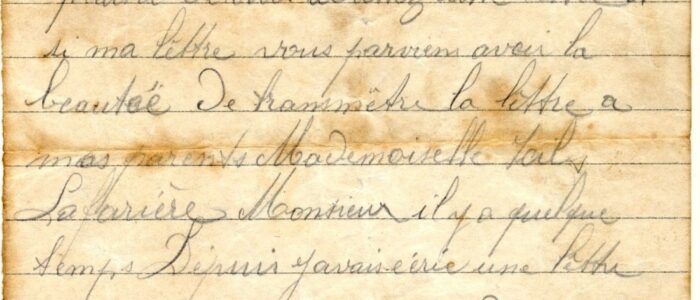 si ma lêttre vous parviens avoir la
beautéë De transmêtre la lêttre a
mes parents Mademoiselle
Lafarière Monsieur il y a quelque
temps Dépuis j'avais éérie une lêttre